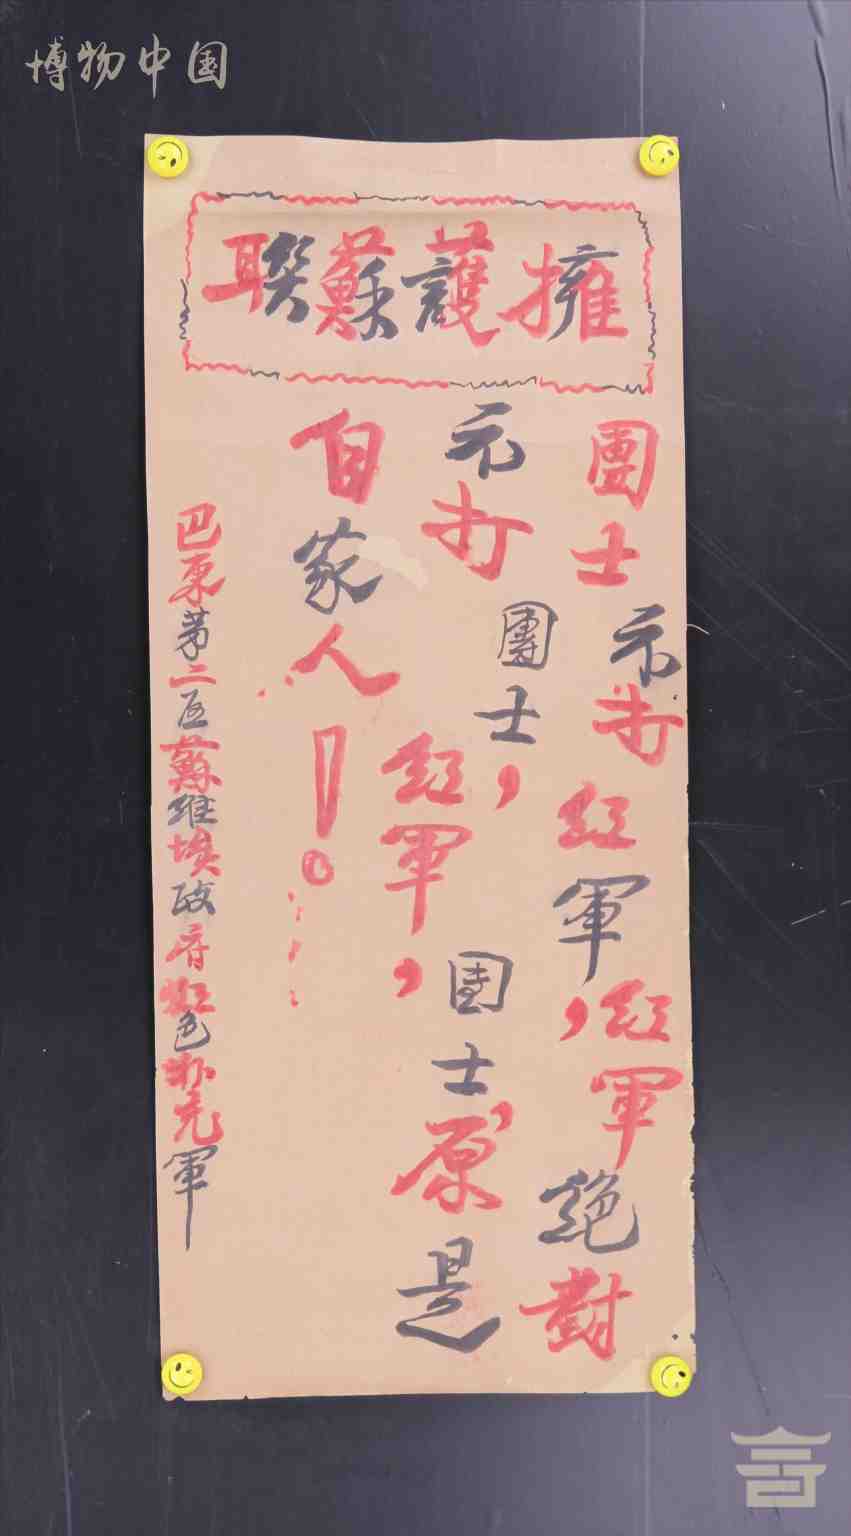 博物中国
擁護蘇聯
團士不打紅軍,紅軍絕對
不打團士,紅軍,團士,原是
自家人!
巴東苐二区蘇維埃政府紅色补充軍